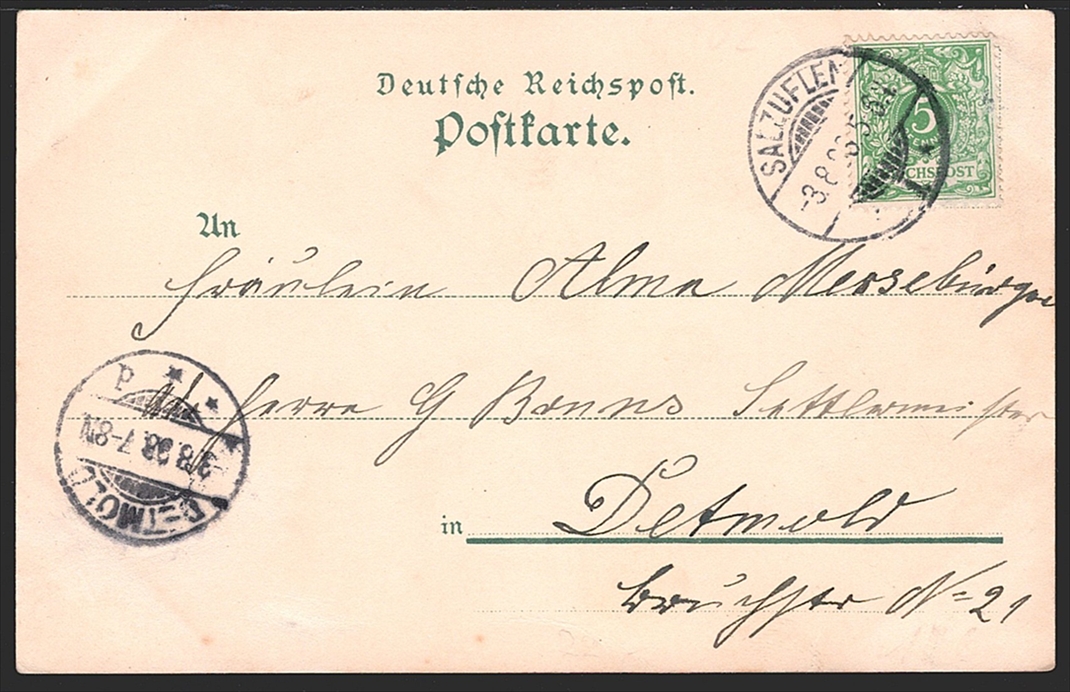 Deutsche Reichspost.
Postkarte.
SALZUFLEN
3.8.98. 5-6N.
5
CHSPOST
An
Fräulein Alma Merseburger
Herrn G Bruns Sattlermeister
in Detmold
Bruchstr No 21
DETMOLD
3/8.98.7-8N.
P